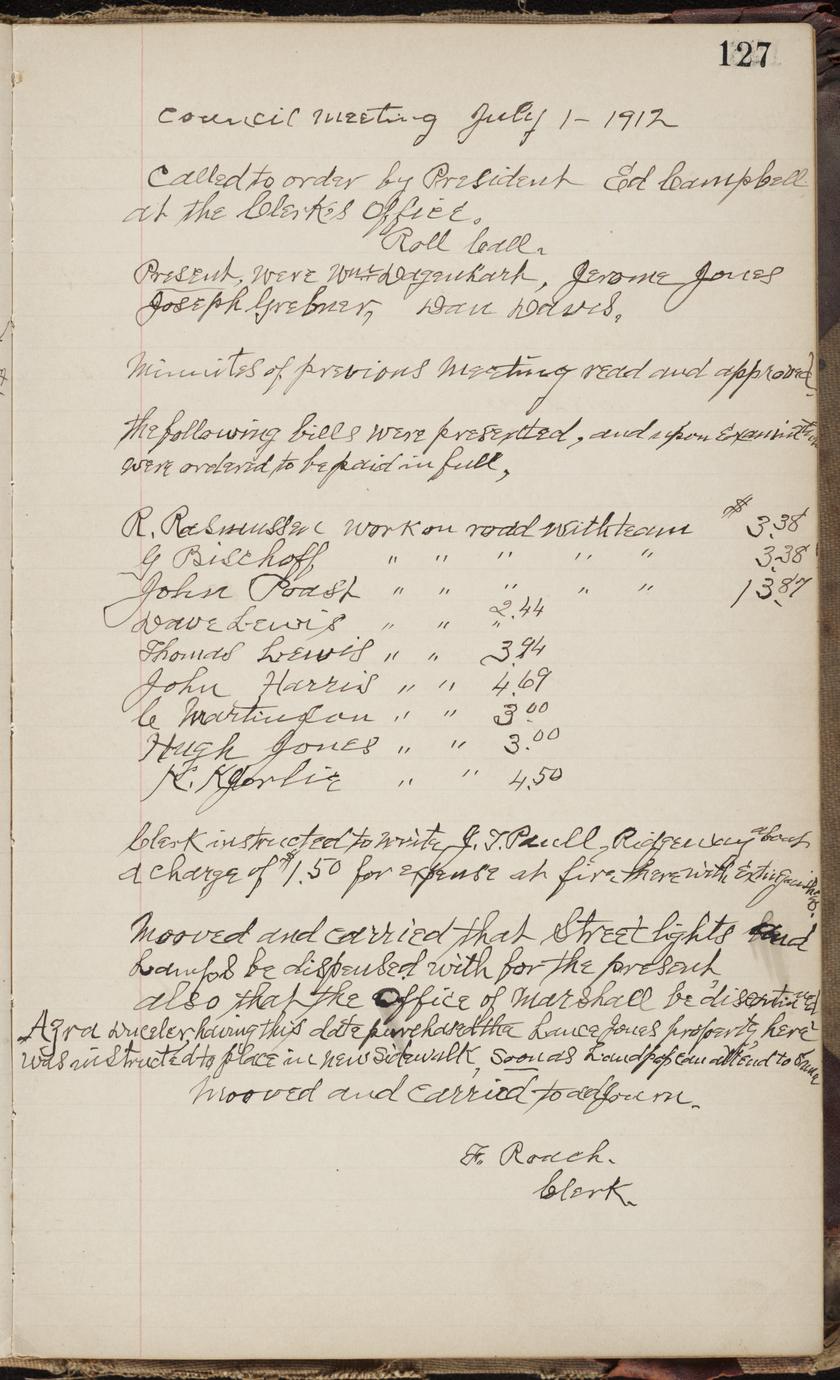 127
Council Meeting July 1 - 1912
Called to order by President Ed Campbell
at the Clerks Office.
Roll Call.
Present, were Wm Dagenhart, Jerome Jones
Joseph Grebner, Dan Davis.
Minnites of previous Meeting read and approved.
the following bills were presented, and upon Examination
were ordered to be paid in full,
R. Rasmussen work on road with team $3.38
G Bischoff " " " " " 3.38
John Poast " " " " " 13.87
Dave Lewis " " " 2.44
Thomas Lewis " " 3.94
John Harris " " 4.69
C Martinson " " 3.00
Hugh Jones " " 3.00
K. " " 4.50
Clerk instructed to write J. T. Paull, Ridgeway about
a charge of $1.50 for expense at fire there with Extinguisher.
Mooved and carried that Street lights and
Lamps be dispensed with for the present
also that the Office of Marshall be discontinued
Azra Wheeler, having this date purchased the Lance Jones property, here
was instructed to place in new sidewalk, soon as can attend to Same
Mooved and carried to adjourn.
F. Roach.
Clerk.